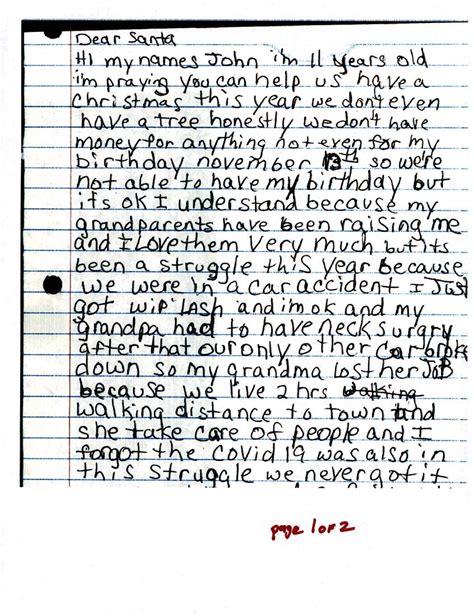 Dear Santa
HI my names John i'm 11 years old
i'm praying you can help us have a
christmas this year we don't even
have a tree honestly we don't have
money for anything not even for my
birthday november 13th so we're
not able to have my birthday but
its ok I understand because my
grandparents have been raising me
and I love them very much but its
been a struggle this year because
we were in a car accident I Just
got wip lash and im ok and my
grandpa had to have neck surgry
after that our only other car broke
down so my grandma lost her JoB
because we live 2 hrs walking
walking distance to town and
she take care of people and I
forgot the covid 19 was also in
this struggle we never got it
page 1 of 2